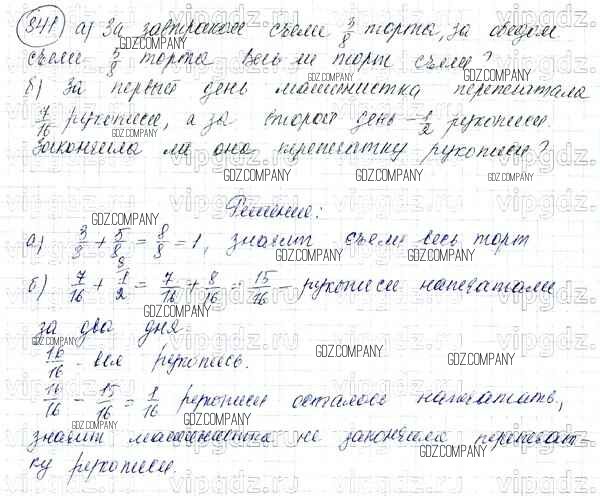 841 а) За завтраком съели 3/8 торта, за обедом
съели 5/8 торта. Весь ли торт съели?
б) За первый день машинистка перепечатала
7/16 рукописи, а за второй день - 1/2 рукописи.
Закончила ли она перепечатку рукописи?
Решение:
а) 3/8 + 5/8 = 8/8 = 1, значит съели весь торт
б) 7/16 + 1/2 = 7/16 + 8/16 = 15/16 - рукописи напечатали
за два дня.
16/16 - вся рукопись.
16/16 - 15/16 = 1/16 рукописи осталось напечатать,
значит машинистка не закончила перепечат-
ку рукописи.
GDZ.COMPANY
vipgdz.ru